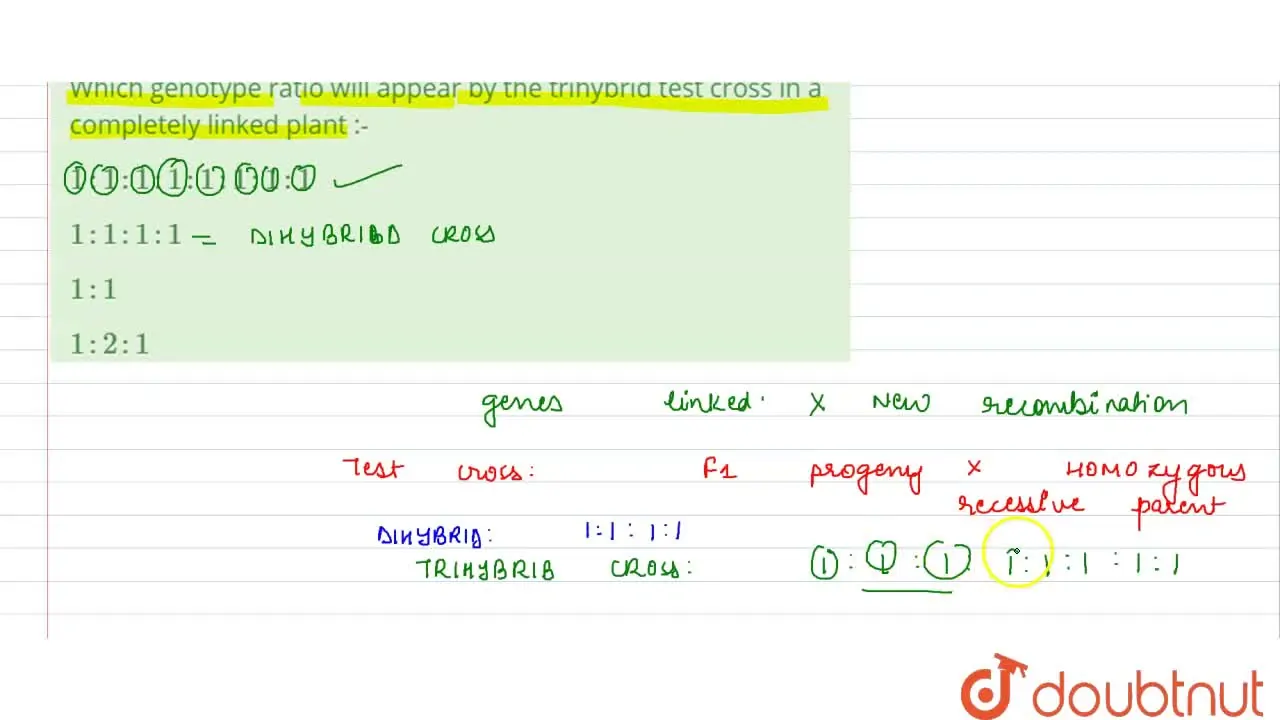 Which genotype ratio will appear by the trihybrid test cross in a
completely linked plant :-
1:1:1:1:1:1:1:1
1:1:1:1 = DIHYBRIBD CROSS
1:1
1:2:1
genes linked. X New recombination
Test cross: F1 progeny X HOMOZYGOUS
recessive parent
DIHYBRID: 1:1:1:1
TRIHYBRIB CROSS: 1:1:1:1:1:1:1:1
doubtnut